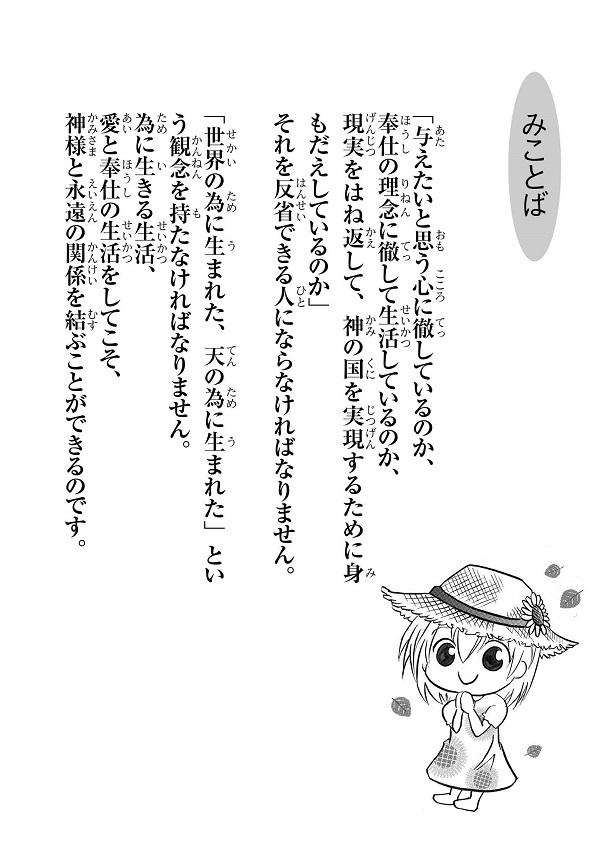 みことば
「与えたいと思う心に徹しているのか、
奉仕の理念に徹して生活しているのか、
現実をはね返して、神の国を実現するために身
もだえしているのか」
それを反省できる人にならなければなりません。
「世界の為に生まれた、天の為に生まれた」とい
う観念を持たなければなりません。
為に生きる生活、
愛と奉仕の生活をしてこそ、
神様と永遠の関係を結ぶことができるのです。